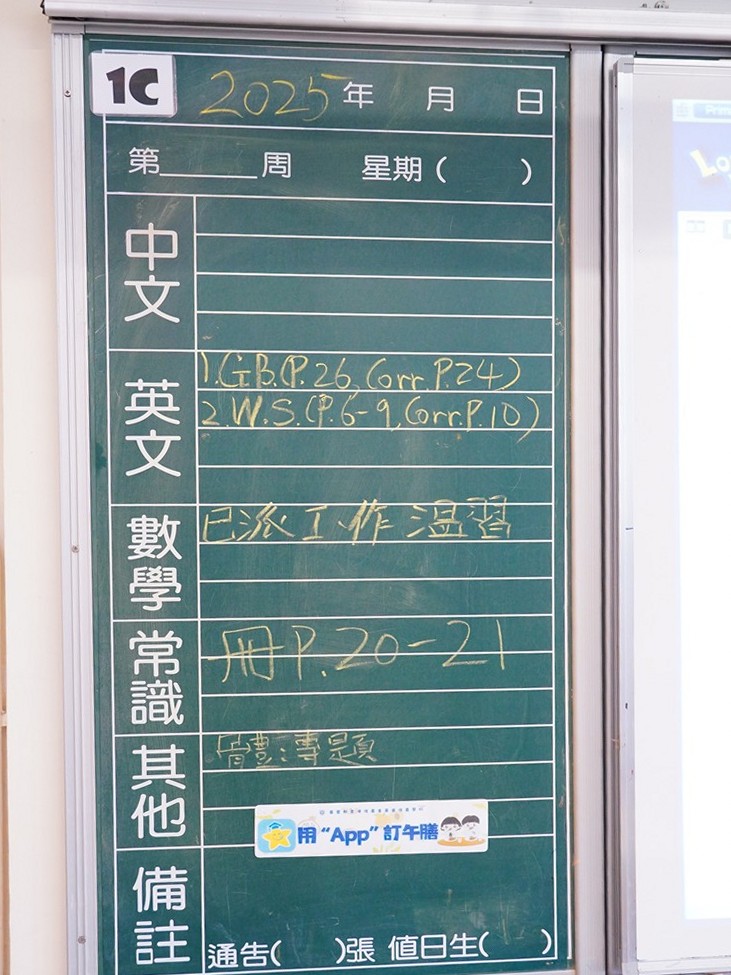 1C 2025年 月 日
第______周 星期( )
中文
英文
1.G.B.(P.26, Corr.P.24)
2.W.S.(P.6-9,Corr.P.10)
數學
已派工作溫習
常識
冊P.20-21
其他
體:專題
用“App”訂午膳
備註
通告( )張 值日生( )